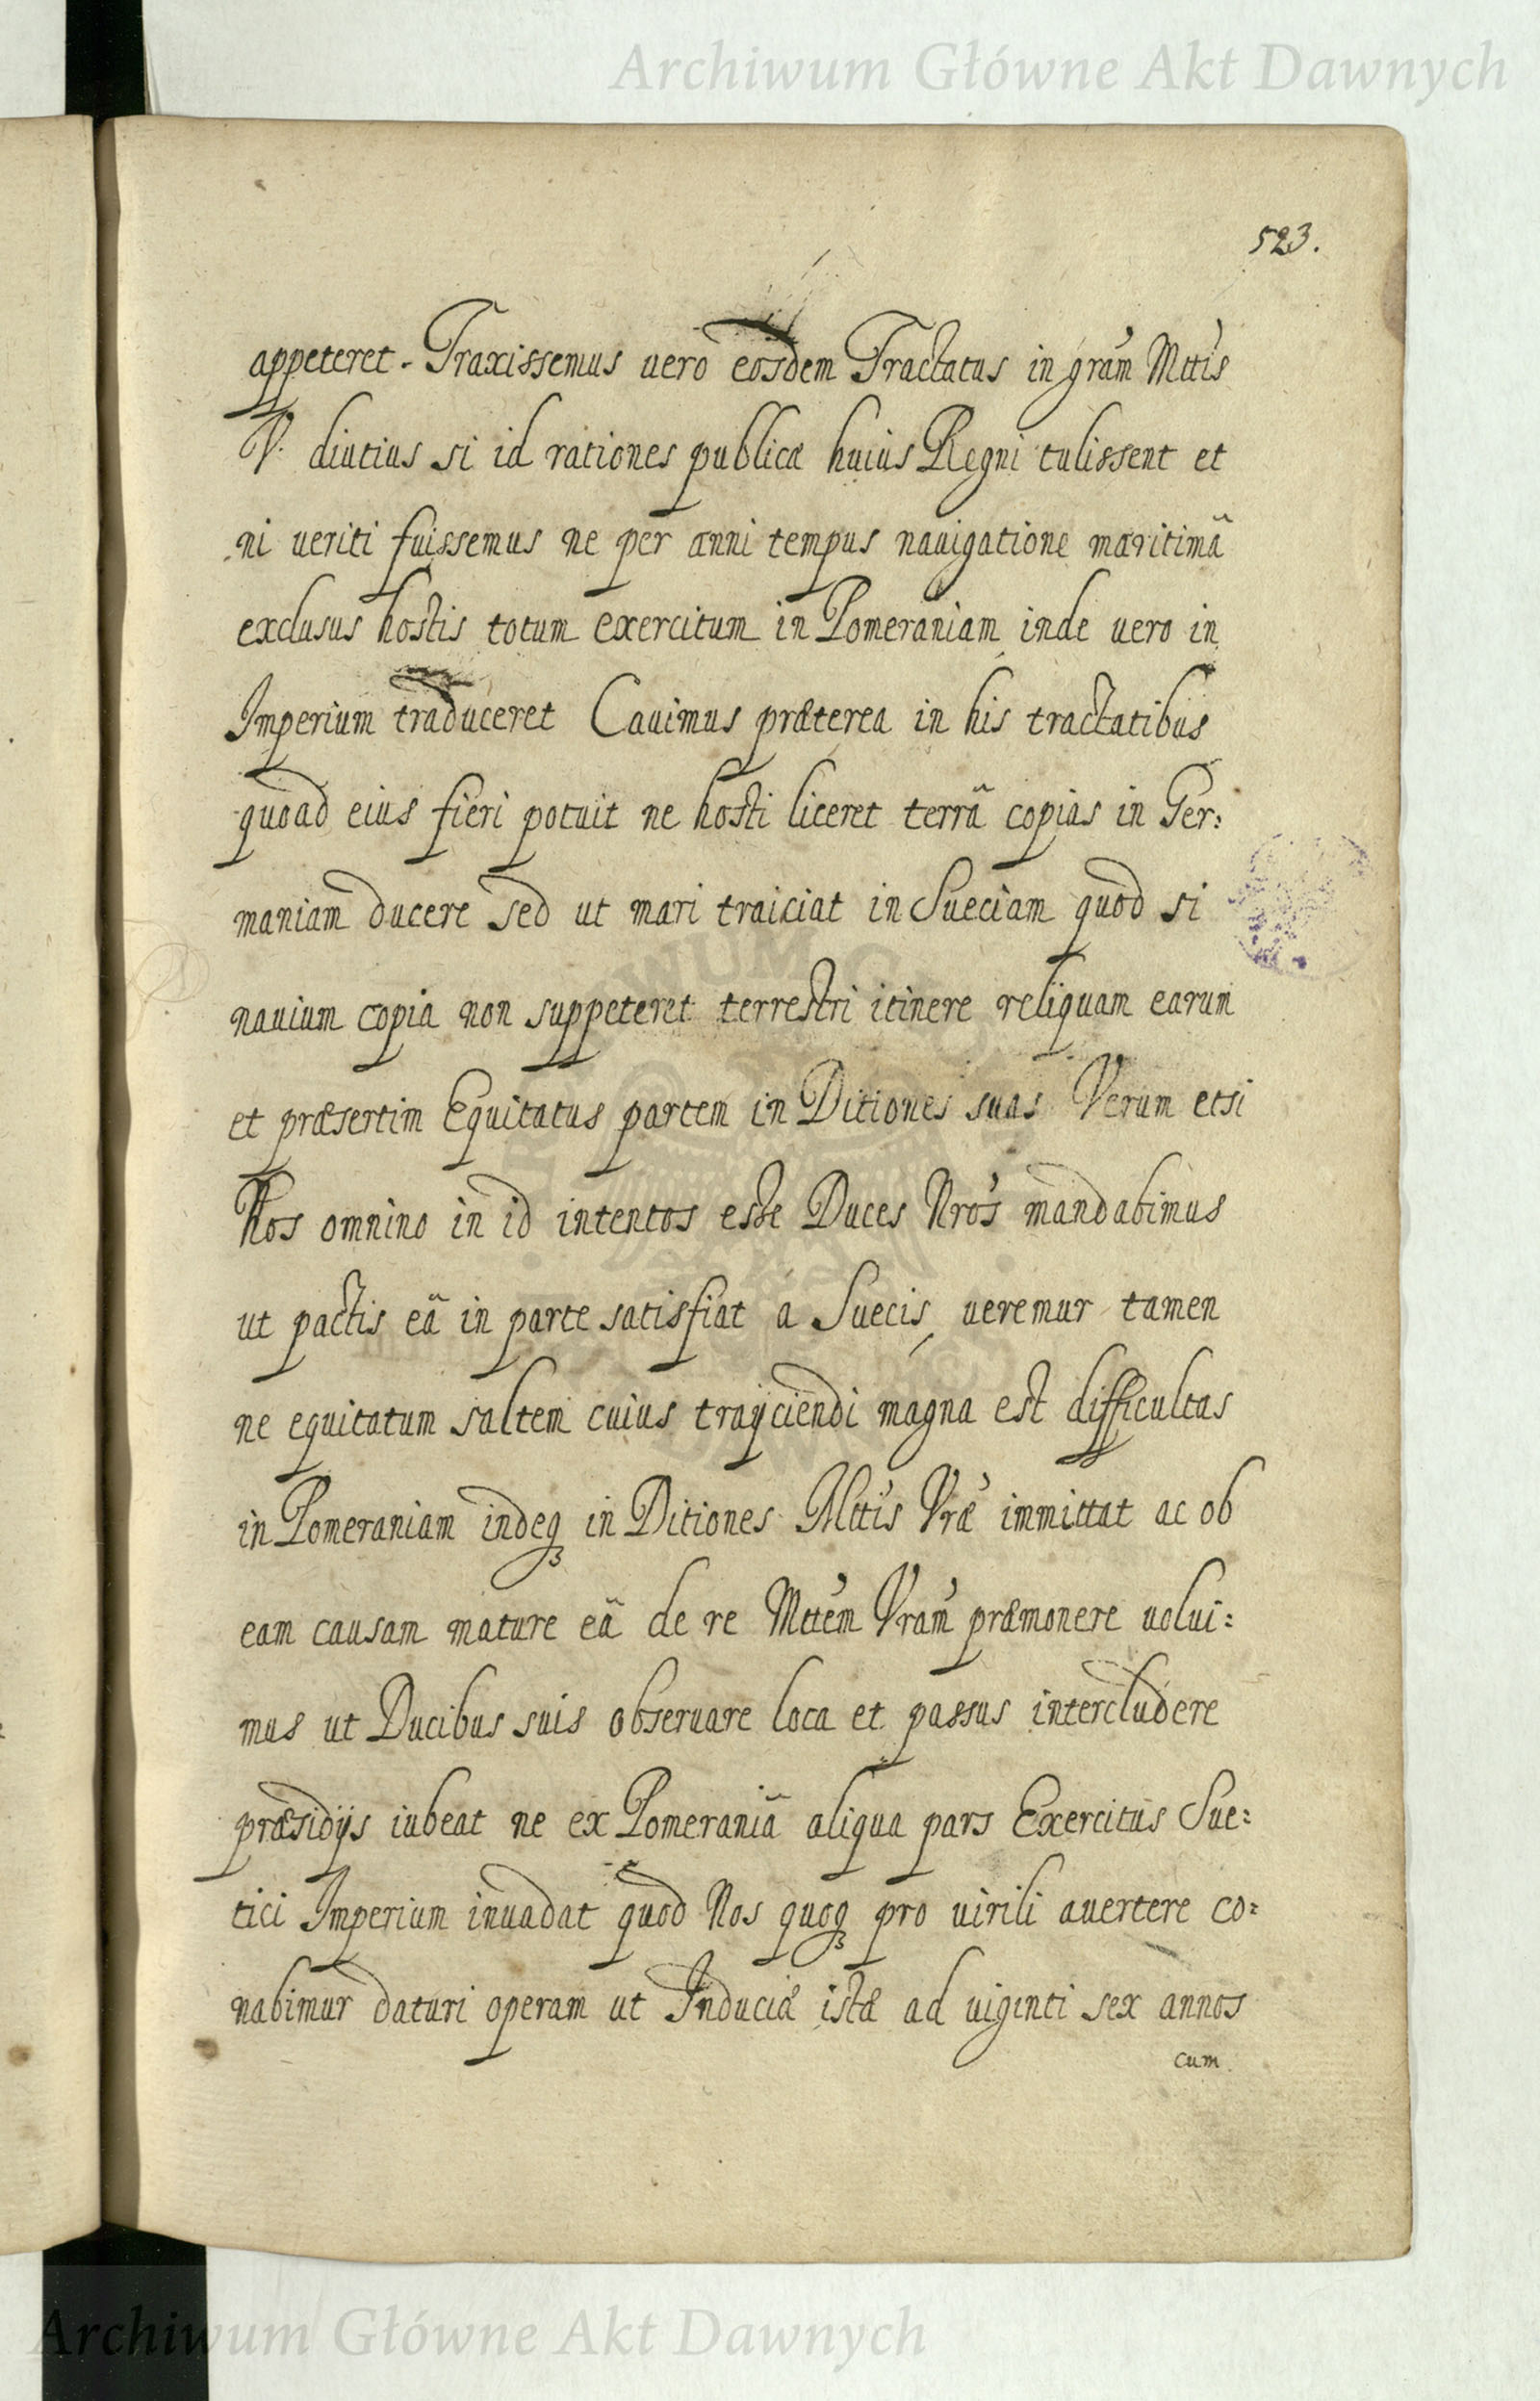 Archiwum Główne Akt Dawnych
523.
appeteret. Traxissemus vero eosdem Tractatus in grãm Mttis
V. diutius si id rationes publicæ huius Regni tulissent et
ni veriti fuissemus ne per anni tempus nauigatione maritimâ
exclusus hostis totum exercitum in Pomeraniam inde vero in
Imperium traduceret Cauimus præterea in his tractatibus
quoad eius fieri potuit ne hosti liceret terrâ copias in Ger:
maniam ducere sed ut mari traiciat in Sueciam quod si
nauium copia non suppeteret terrestri itinere reliquam earum
et præsertim Equitatus partem in Ditiones suas Verum etsi
Nos omnino in id intentos esse Duces Nros mandabimus
ut pactis eâ in parte satisfiat a Suecis, veremur tamen
ne equitatum saltem cuius trayciendi magna est difficultas
in Pomeraniam indeq₃ in Ditiones Mttis Vræ immittat ac ob
eam causam mature eâ de re Mttem Vram præmonere volui:
mus ut Ducibus suis obseruare loca et passus intercludere
præsidijs iubeat ne ex Pomeraniâ aliqua pars Exercitus Sue:
tici Imperium inuadat quod Nos quoq₃ pro virili auertere co:
nabimur daturi operam ut Induciæ istæ ad viginti sex annos
cum
Archiwum Główne Akt Dawnych